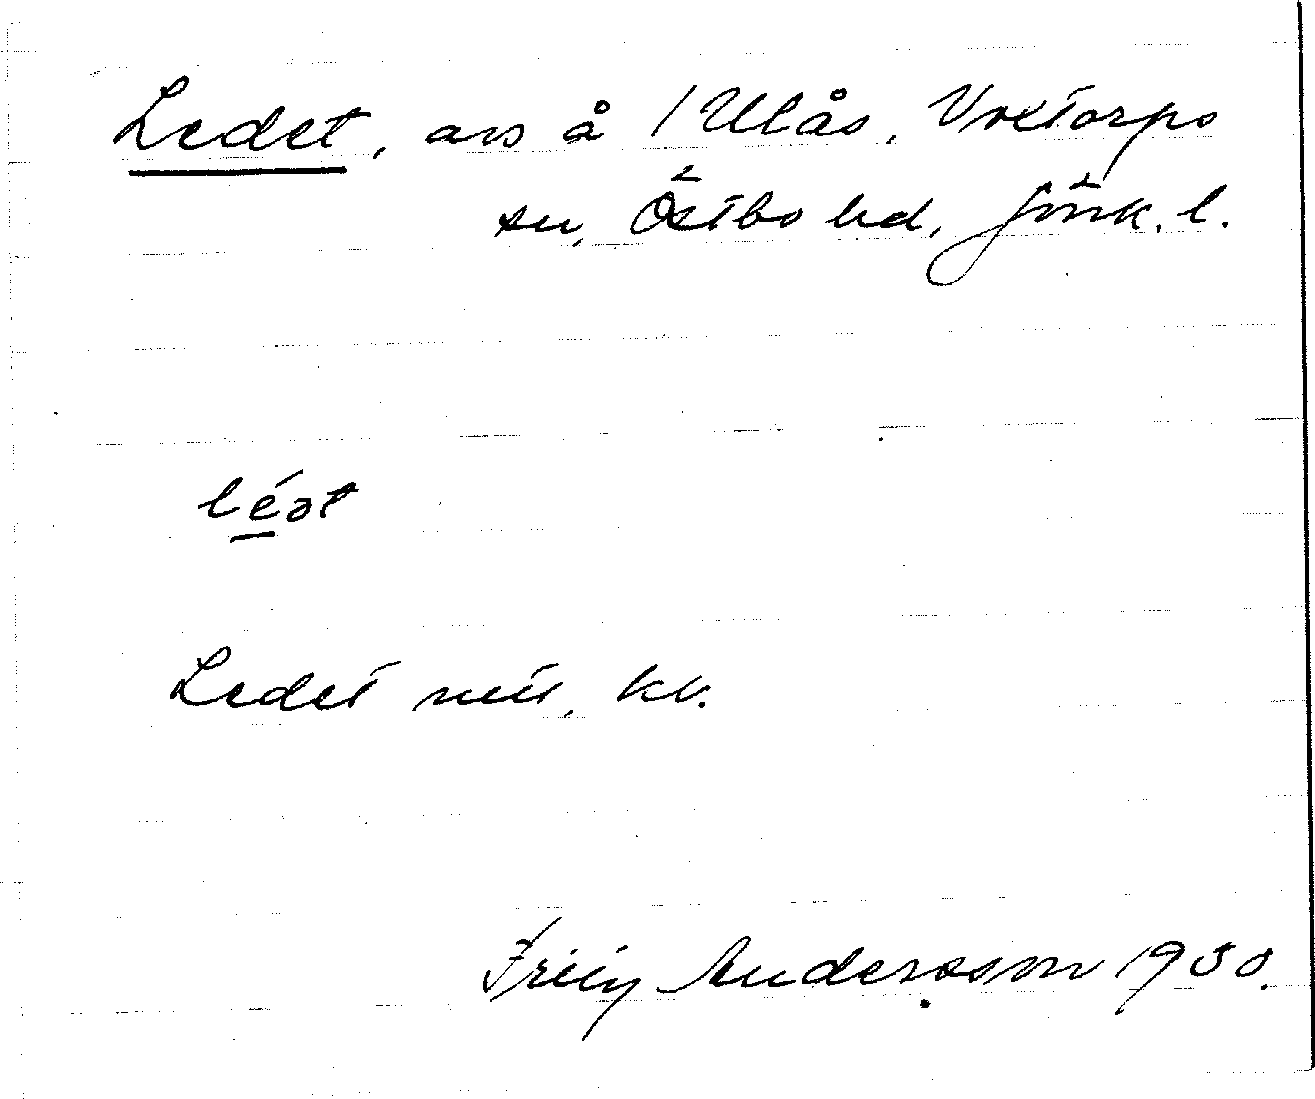 Ledet, avs å 1 Ulås, Voxtorps
sn, Östbo hd, Jönk. l.
léət
Ledet nu, kv.
Fritz Andersson 1930.